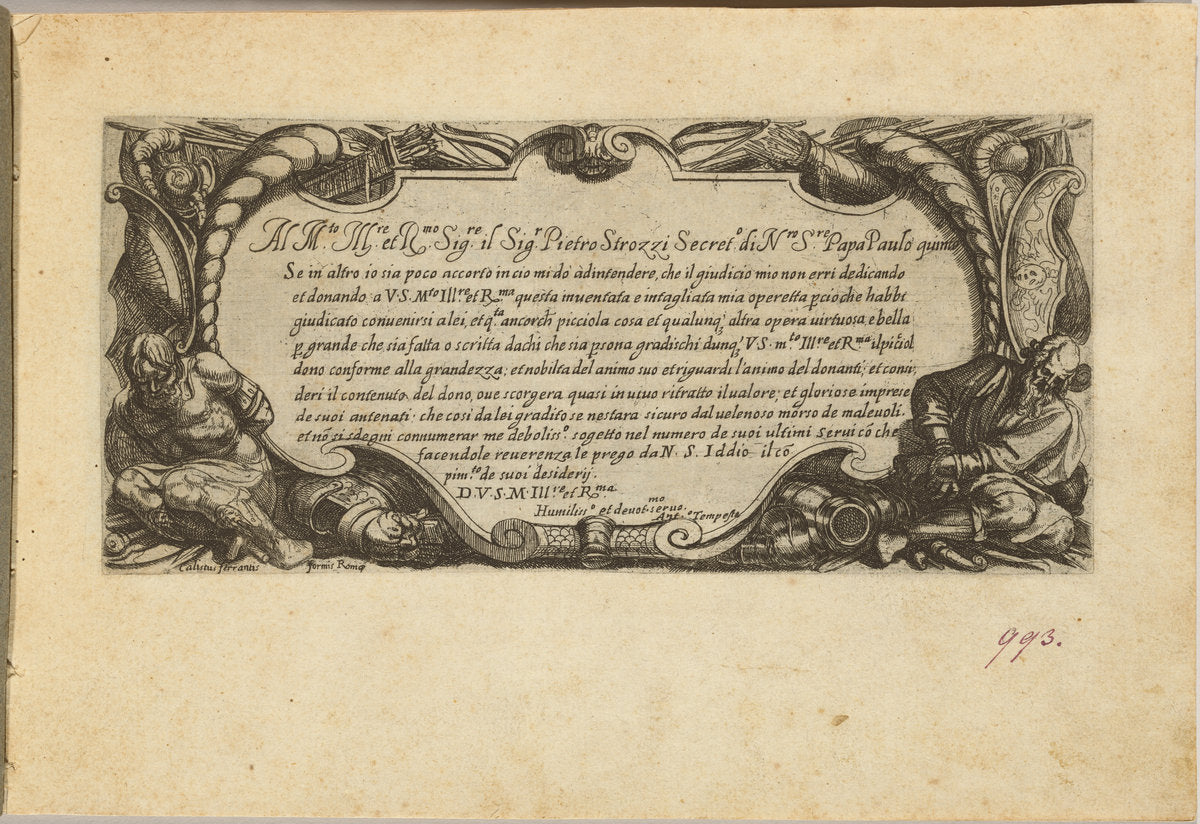 Al M.to Ill.re et R.mo Sig.re il Sig.r Pietro Strozzi Secret.o di N.ro S.re Papa Paulo quinto
Se in altro io sia poco accorto in cio mi do ad intendere, che il giudicio mio non erri dedicando
et donando a V.S. M.to Ill.re et R.ma questa inuentata e intagliata mia operetta p cio che habbi
giudicato conuenirsi a lei, et q.ta ancorch' picciola cosa et qualunq; altra opera uirtuosa, e bella
p grande che sia fatta o scritta da chi che sia psona gradischi dunq; V.S. m.to Ill.re et R.ma il piciol
dono conforme alla grandezza, et nobilta del animo suo et riguardi l'animo del donanti, et consi,
deri il contenuto del dono, oue scorgera quasi in uiuo ritratto il ualore, et gloriose imprese
de suoi antenati, che cosi da lei gradito se nestara sicuro dal uelenoso morso de maleuoli.
et nõ si sdegni connumerar me deboliss.o sogetto nel numero de suoi ultimi serui cõ che
facendole reuerenza le prego da N. S. Iddio il cõ
pim.to de suoi desiderij.
D.V.S.M. Ill.re et R.ma
Humiliss.o et deuot.mo seruo.
Ant.o Tempesta
Calistus ferrantis formis Romę
993.